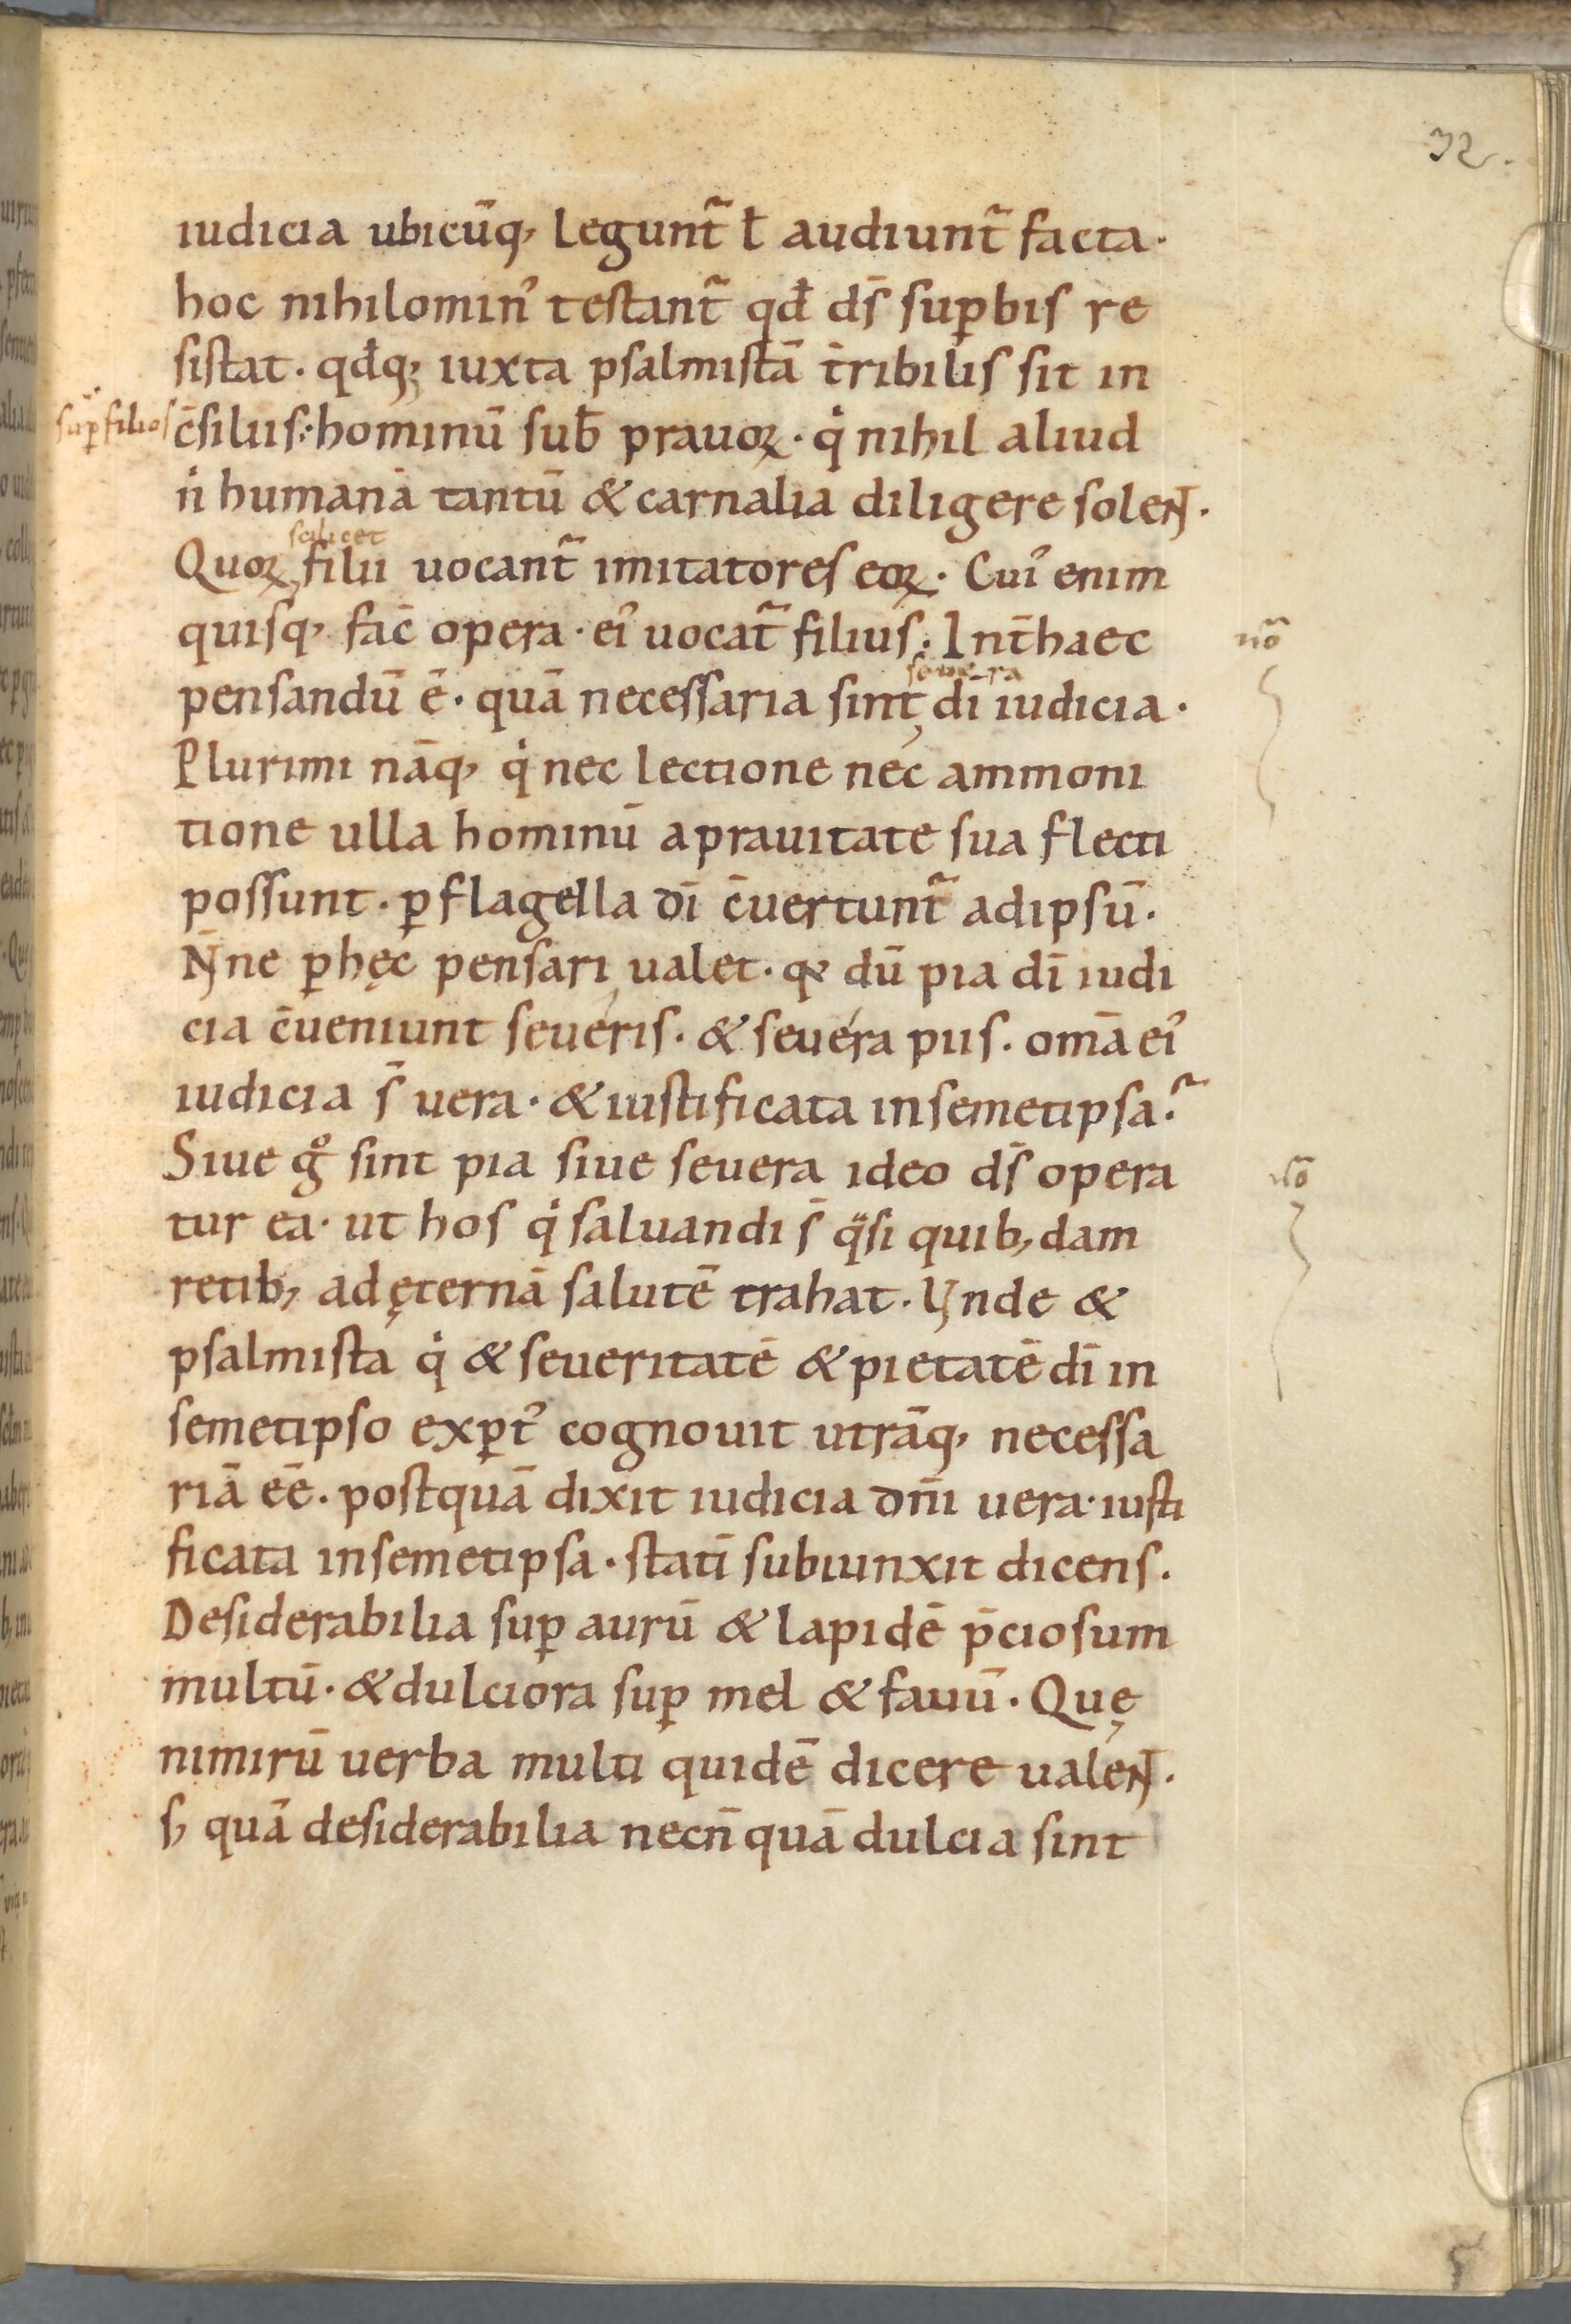 32.
iudicia ubicūq, legunt᷒ ł audiunt᷒ facta·
hoc nihilomin᾿ testant᷒ qđ dс̄ suꝑbis re
sistat · qđq; iuxta psalmistā t̄ribilis sit in
suꝑ filios
c̄siliis :· hominū sub̄ prauoꝝ · q̇ nihil aliud
ṅ humana tantū & carnalia diligere solent·
scilicet
Quoꝝ, filii uocant᷒ imitatores eoꝝ · Cui᾿ enim
quisq, fac̄ opera · ei᾿ uocat᷒ filius : Int̄ haec
nō
seuera
pensandū ē · quā necessaria sint, dī iudicia ·
Plurimi nāq, q̇ nec lectione nec ammoni
tione ulla hominū a prauitate sua flecti
possunt · ꝑ flagella dī c̄uertunt᷒ adipsū ·
N̄ne ꝑ hęc pensari ualet · qꝫ dū pia dī iudi
cia c̄ueniunt seueris · & seuera piis · om̄a ei᾿
iudicia s̄ uera · & iustificata insemetipsa·᷒
Siue gͦ sint pia siue seuera ideo ds̄ opera
nō
tur ea · ut hos q̇ saluandi s̄ qͣsi quib, dam
retib, ad ęternā salutē trahat · Unde &
psalmista q̇ & seueritatē & pietatē dī in
semetipso exꝑt᾿ cognouit utrāq, necessa
riā eē · postquā dixit iudicia dn̄i uera · iusti
ficata insemetipsa · statī subiunxit dicens ·
Desiderabilia suꝑ aurū & lapidē p̄ciosum
multū · & dulciora suꝑ mel & fauū · Quę
nimirū uerba multi quidē dicere ualent ·
s, quā desiderabilia necn̄ quā dulcia sint